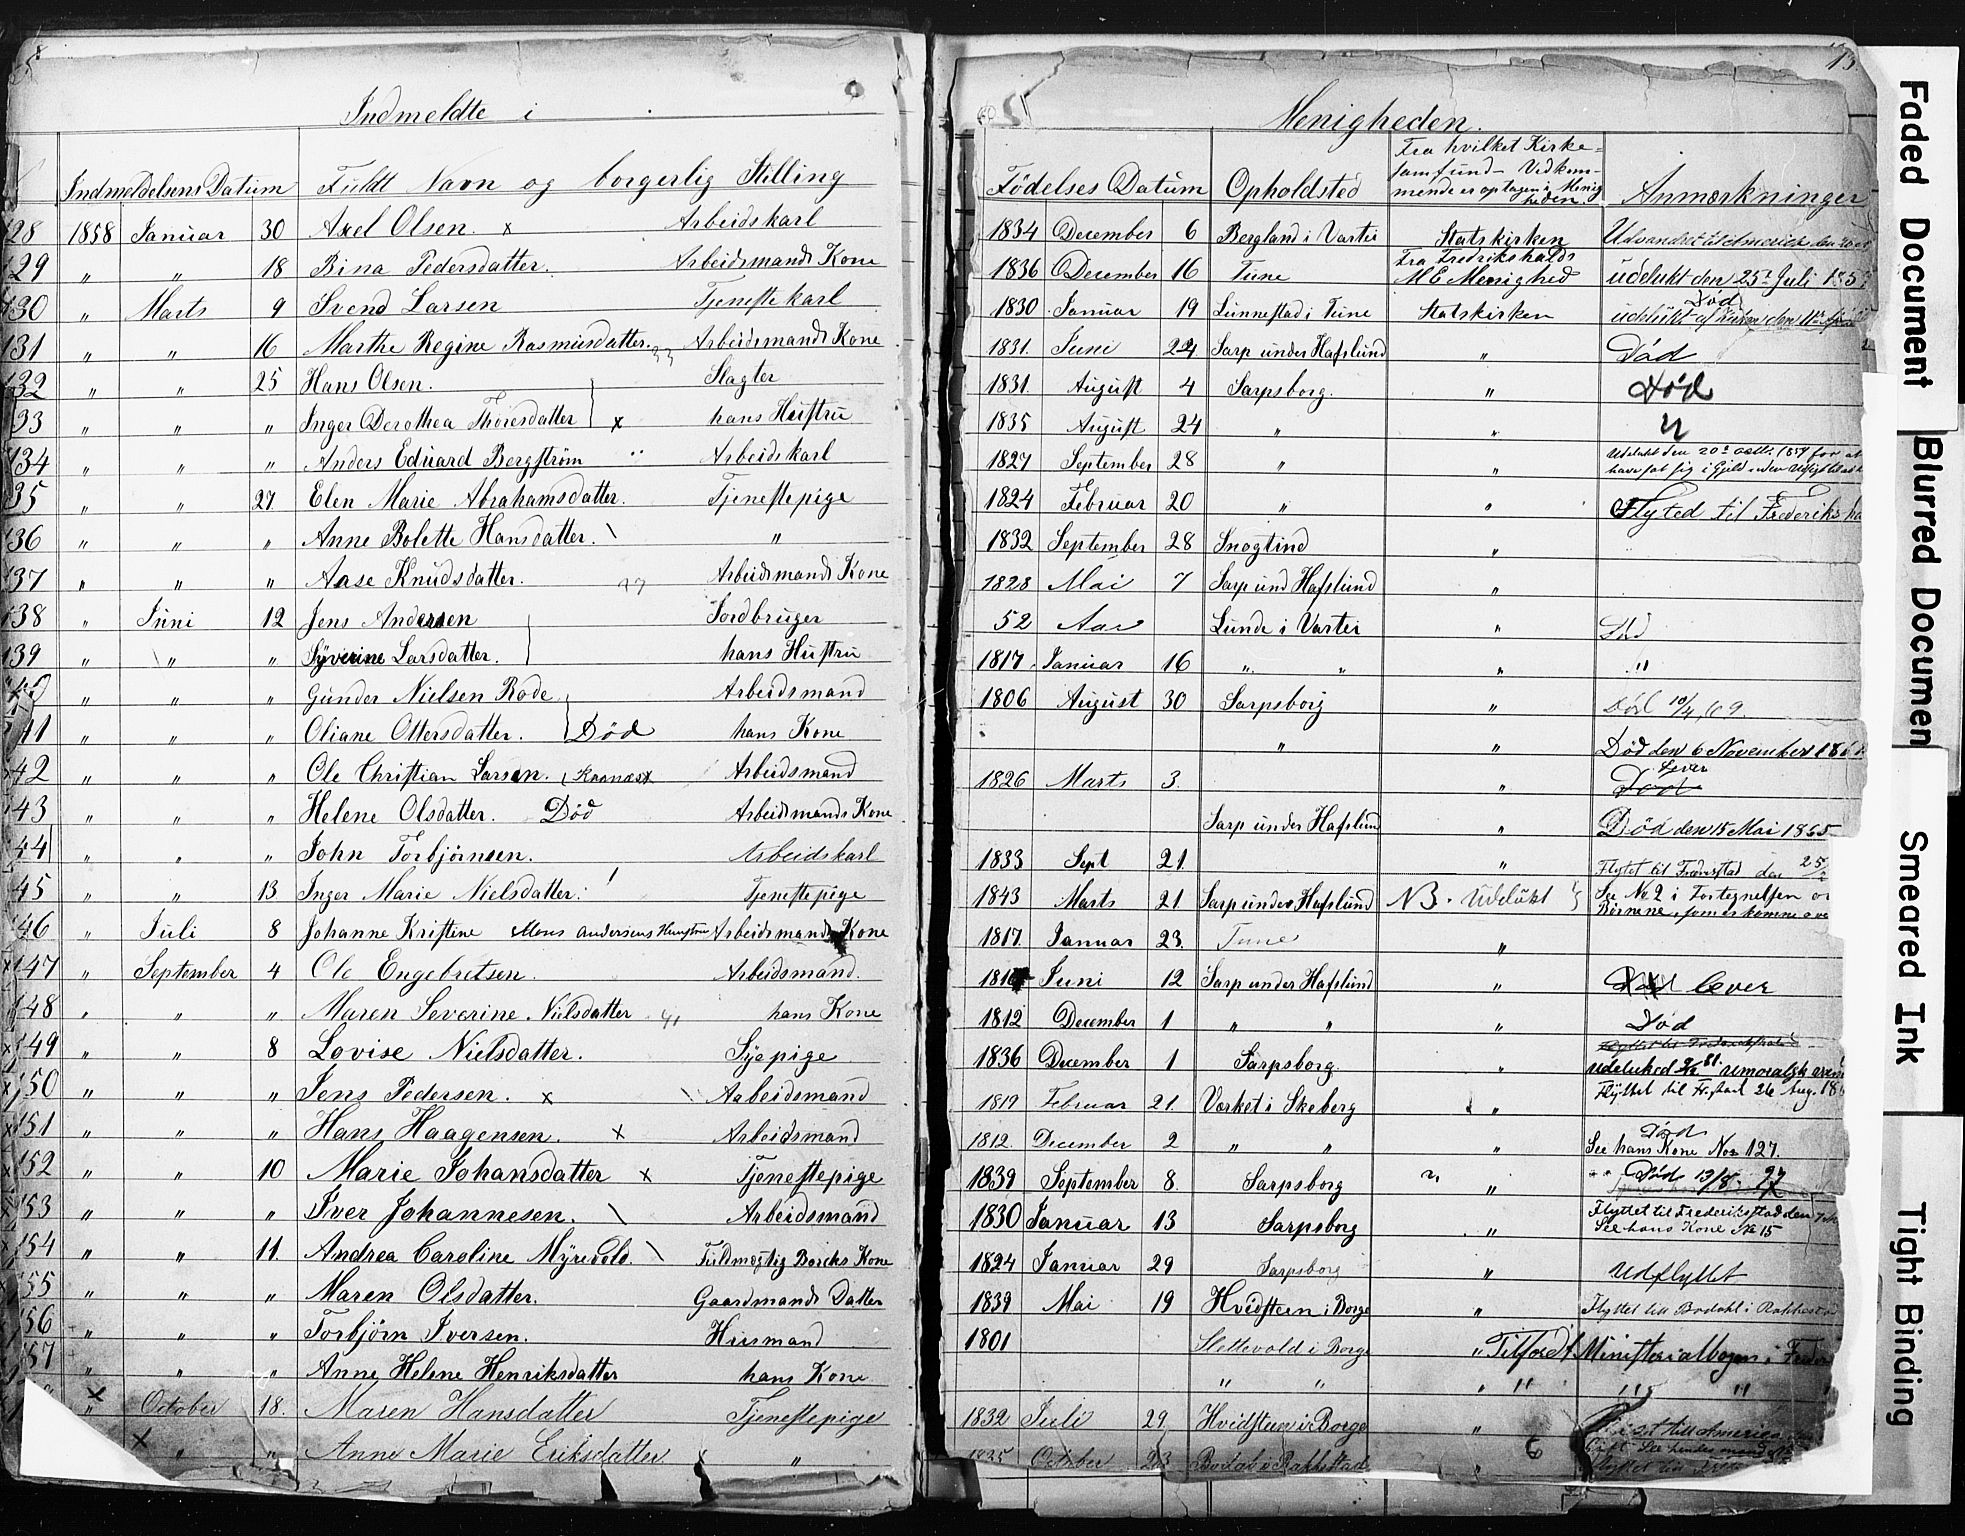 Indmeldte i
Indmeldelsens Datum Fuldt Navn og borgerlig Stilling
128 1858 Januar 30 Axel Olsen. x Arbeidskarl
129 " " 18 Bina Pedersdatter. Arbeidsmands Kone
130 " Marts 9 Svend Larsen Tjenestekarl
131 " " 16 Marthe Regine Rasmusdatter. Arbeidsmands Kone
132 " " 25 Hans Olsen. Slagter
133 " " " Inger Dorothea Thoresdatter x hans Hustru
134 " " " Anders Eduard Bergström Arbeidskarl
135 " " 27 Elen Marie Abrahamsdatter. Tjenestepige
136 " " " Anne Bolette Hansdatter. \ "
137 " " " Aase Knudsdatter. Arbeidsmands Kone
138 " Juni 12 Jens Andersen Jordbruger
139 " " " Syverine Larsdatter. hans Hustru
140 " " " Gunder Nielsen Rode Arbeidsmand
141 " " " Oliane Ottersdatter. Død hans Kone
142 " " " Ole Christian Larsen. Arbeidsmand
143 " " " Helene Olsdatter. Død Arbeidsmands Kone
144 " " " John Torbjörnsen. Arbeidskarl
145 " " 13 Inger Marie Nielsdatter. Tjenestepige
146 " Juli 8 Johanne Kristine Mons Andersens Arbeidsmands Kone
x 147 " September 4 Ole Engebretsen. Arbeidsmand.
148 " " " Maren Severine Nielsdatter 41 hans Kone
x 149 " " 8 Lovise Nielsdatter. Syepige
x 150 " " " Jens Pedersen. x \ Arbeidsmand
x 151 " " " Hans Haagensen. x Arbeidsmand
x 152 " " 10 Marie Johansdatter x Tjenestepige
x 153 " " " Iver Johannesen. \ Arbeidsmand
x 154 " " 11. Andrea Caroline Myrvold. \ Fuldmægtig Borchs Kone
155 " " " Maren Olsdatter. Gaardmands Datter
156 " " " Torbjörn Iversen. Husmand
157 " " " Anne Helene Henriksdatter hans Kone
x " October 18. Maren Hansdatter Tjenestepige
x " " Anne Marie Eriksdatter x "
15.
Menigheden.
Fødelses Datum Opholdsted Fra hvilket Kirke=
samfund Vedkom-
mende er optagen i Menig
heden. Anmærkninger
1834 December 6 Bergland i Varteig Statskirken Udvandret til America den
1836 December 16 Tune Fra Fredrikshalds
M E Menighed udelukt den 25de Juli 185
1830 Januar 19 Lunnestad i Tune Statskirken Død
udelukt af kirken den 11te April
1831. Juni 24 Sarp under Hafslund " Død
1831 August 4 Sarpsborg. " Død
1835 August 24 " " "
1827 September 28 " " Udelukt den 20de octb. 1859 for at
have sat sig i Gjeld uden Udsigt til at
1824 Februar 20 " " Flyted til Frederiksha
1832 September 28 Snogtind "
1828 Mai 7 Sarp und Hafslund "
52 Aar Lunde i Varteig " Død
1817 Januar 16 " " " "
1806 August 30 Sarpsborg " Død 10/4, 69.
" " Død den 6 November 186
1826 Marts 3. " Lever
Død
Sarp under Hafslund " Død den 15 Mai 1865
1833 Sept 21. " Flytet til Fredrikstad den 25/
1843 Marts 21 Sarp under Hafslund NB. Udelukt See No 2 i Fortegnelsen over
Börnene, som er komne over
1817. Januar 23. Tune "
181 Juni 12 Sarp under Hafslund " Død lever
1812 December 1 " " " Død
1836 December 1 Sarpsborg "
udelukked 81. umoralsk
1819 Februar 21. Værket i Skeberg " Flyttet til Fr.stad 26 Aug. 18
1812. December 2 " " " Død
See hans Kone No 127.
1839 September 8. Sarpsborg " Død 13/8 97
1830 Januar 13 Sarpsborg " Flyttet til Frederikstad den
See hans Kone No 15
1824 Januar 29 Sarpsborg " Udflyttet
1839 Mai 19 Hvidsteen i Borge " Flyttet till Bodahl i Rakkestad
1801 Slettevold i Borge " Tilfördt Ministerialbogen i Freder
" " " " " "
1832 Juli 29. Hvidsteen i Borge " Reist till America
1835 October 23 Bodal i Rakkestad " Gift. See hendes mand
Flyttet til
Faded Document
Blurred Documen
Smeared Ink
Tight Binding